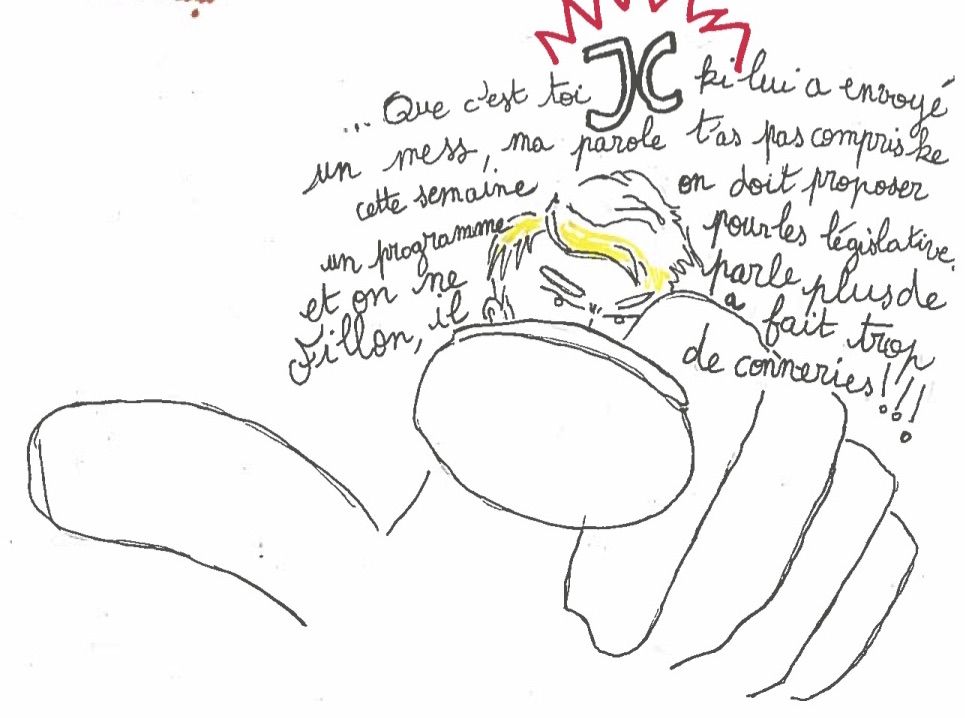 ... Que c'est toi JC ki lui a envoyé
un mess, ma parole t'as pas compris ke
cette semaine on doit proposer
un programme pour les législative.
et on ne parle plus de
Fillon, il a fait trop
de conneries!!!